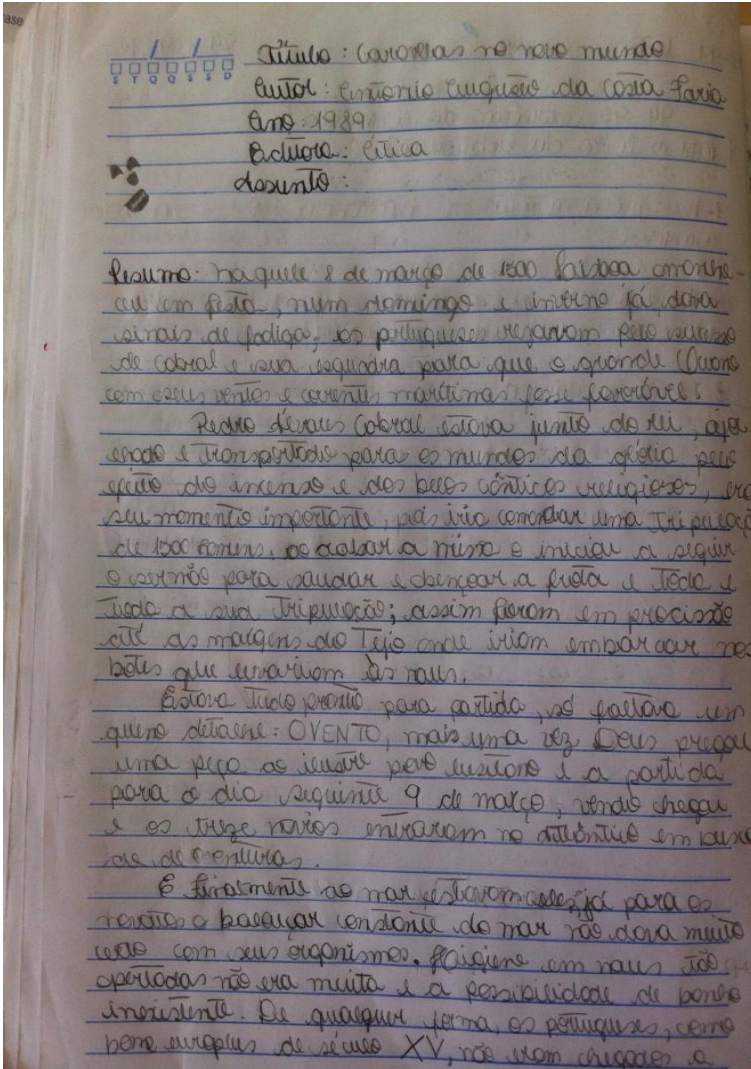 ase
S T Q Q S S D
Título: Caravelas no novo mundo
Autor: Antonio Augusto da Costa Faria
Ano: 1989
Editora: Ática
Assunto:
Resumo: Naquele 8 de março de 1500 Lisboa amanhe-
ceu em festa, num domingo e inverno já dava
sinais de fadiga, os portugueses rezavam pelo sucesso
de Cabral e sua esquadra para que o grande Oceano
com seus ventos e correntes marítimas fosse favorável.
Pedro Álvares Cabral estava junto do rei,
e transportado para os mundos da glória pelo
efeito do incenso e dos belos cânticos religiosos, era
seu momento importante, pois iria comandar uma tripulaçã
de 1500 homens. ao acabar a missa o iniciou a seguir
o sermão para saudar e abençoar a frota e toda e
toda a sua tripulação; assim foram em procissão
até as margens do Tejo onde iriam embarcar nos
botes que levariam às naus.
Estava tudo pronto para partida, só faltava um
queno detalhe: O VENTO, mais uma vez Deus pregou
uma peça ao ilustre povo lusitano e a partida
para o dia seguinte 9 de março, vendo chegou
e os treze navios entraram no Atlântico em busc
de aventuras.
E finalmente ao mar estavam eles, já para os
novatos o balançar constante do mar não dava muito
certo com seus organismos. Higiene em naus tão
apertadas não era muita e a possibilidade de banho
inexistente. De qualquer forma, os portugueses, como
bons europeus de século XV, não eram chegados a